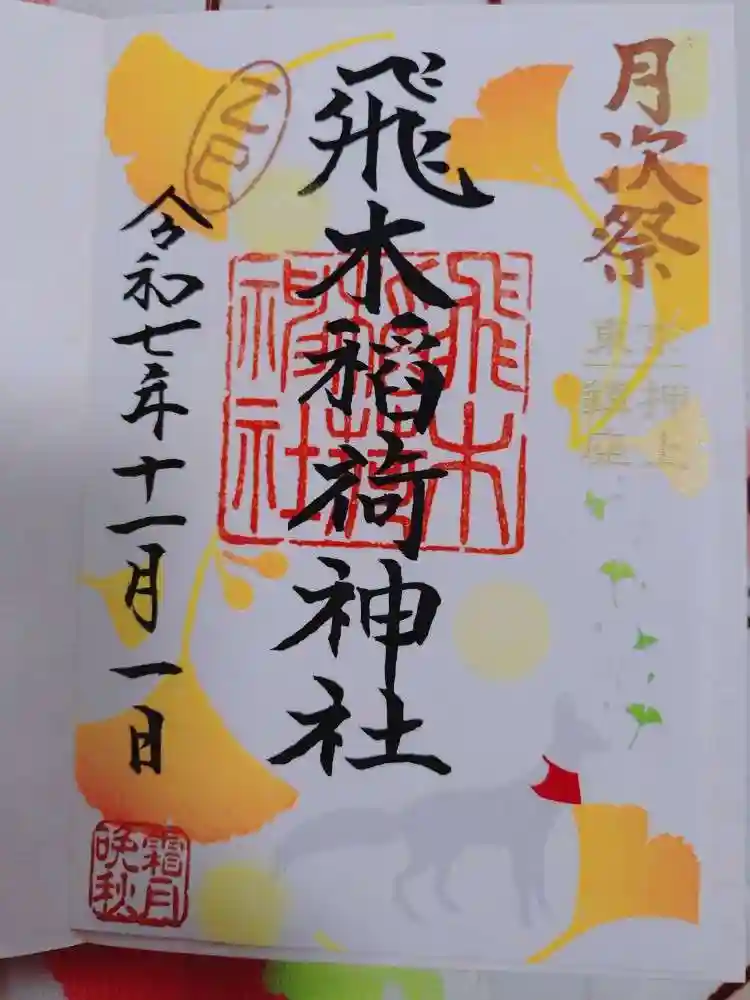 月次祭
京押上
東鎮座
飛木稲荷神社
飛木
稲荷
神社
令和七年十一月一日
霜月
晩秋